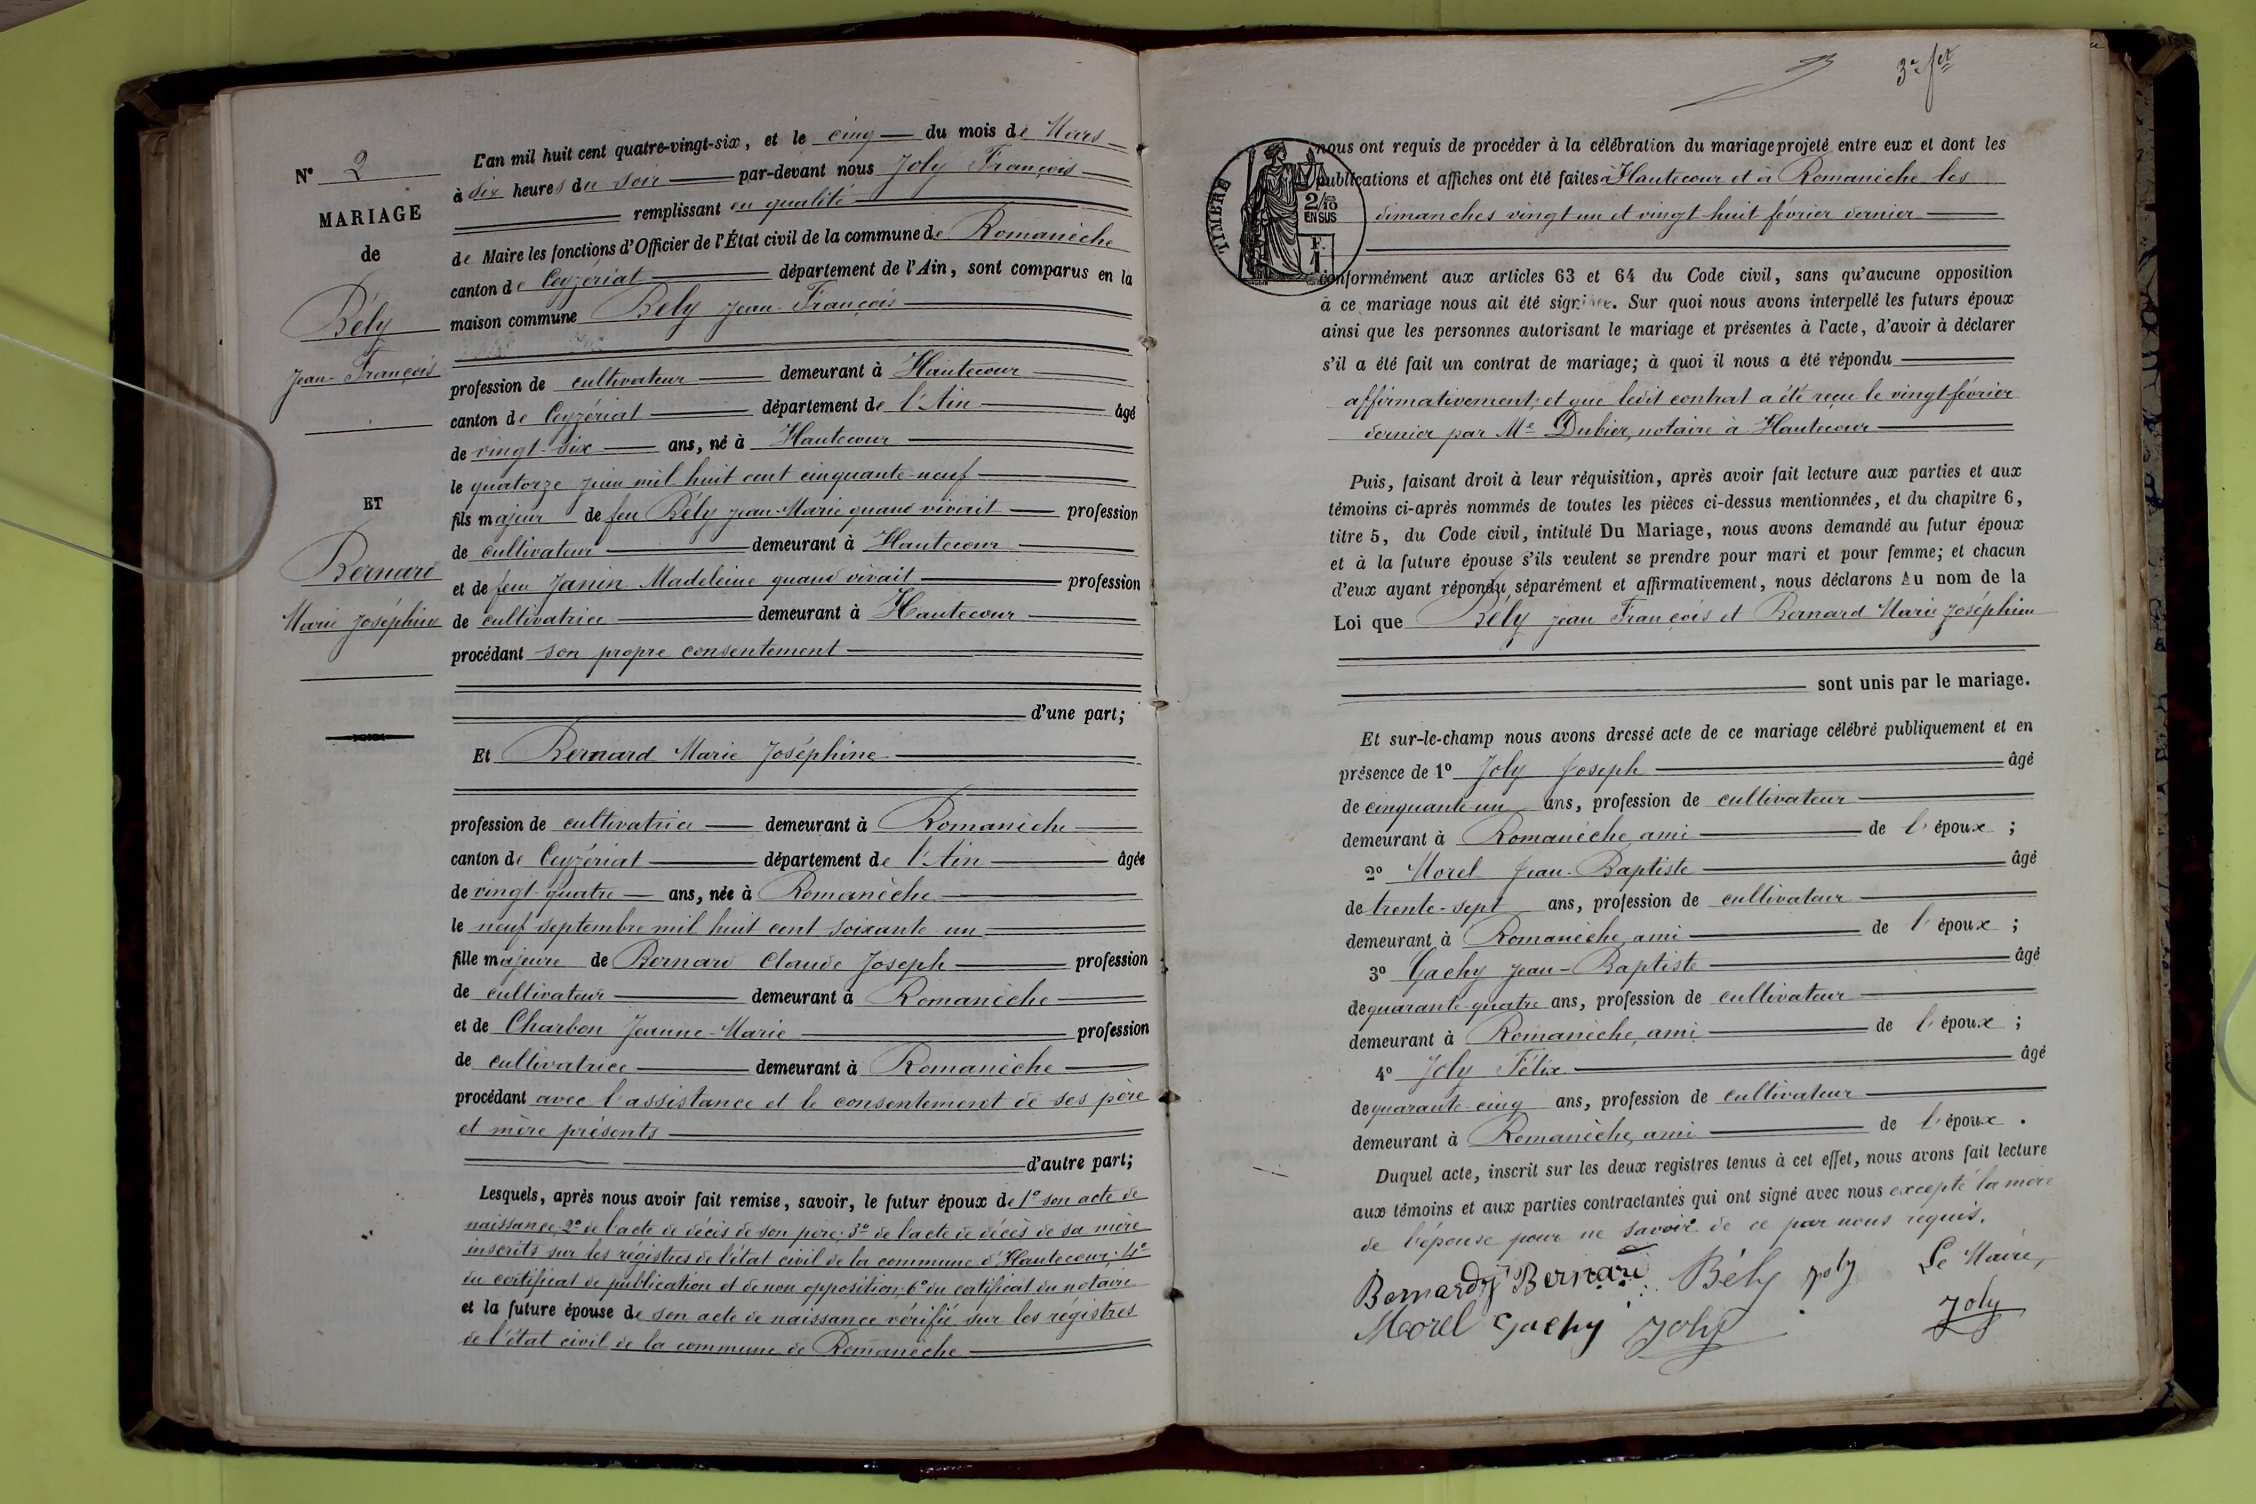 N° 2
MARIAGE
de
Bély
Jean-François
ET
Bernard
Marie Joséphine
L'an mil huit cent quatre-vingt-six, et le cinq du mois de Mars
à six heures du soir par-devant nous Joly François
remplissant en qualité
de Maire les fonctions d'Officier de l'État civil de la commune de Romanèche
canton de Ceyzériat département de l'Ain, sont comparus en la
maison commune Bély Jean-François
profession de cultivateur demeurant à Hautecour
canton de Ceyzériat département de l'Ain âgé
de vingt-six ans, né à Hautecour
le quatorze juin mil huit cent cinquante-neuf
fils majeur de feu Bély Jean-Marie quand vivait profession
de cultivateur demeurant à Hautecour
et de feu Janin Madeleine quand vivait profession
de cultivatrice demeurant à Hautecour
procédant son propre consentement
d'une part;
Et Bernard Marie Joséphine
profession de cultivatrice demeurant à Romanèche
canton de Ceyzériat département de l'Ain âgée
de vingt-quatre ans, née à Romanèche
le neuf septembre mil huit cent soixante un
fille majeure de Bernard Claude Joseph profession
de cultivateur demeurant à Romanèche
et de Charbon Jeanne-Marie profession
de cultivatrice demeurant à Romanèche
procédant avec l'assistance et le consentement de ses père
et mère présents
d'autre part;
Lesquels, après nous avoir fait remise, savoir, le futur époux de 1° son acte de
naissance, 2° de l'acte de décès de son père; 3° de l'acte de décès de sa mère
inscrits sur les régistres de l'état civil de la commune d'Hautecour; 4°
du certificat de publication et de non opposition; 6° du certificat du notaire
et la future épouse de son acte de naissance vérifié sur les régistres
de l'état civil de la commune de Romanèche
TIMBRE
2/10
EN SUS
1 F.
nous ont requis de procéder à la célébration du mariage projeté entre eux et dont les
publications et affiches ont été faites à Hautecour et à Romanèche les
dimanches vingt un et vingt huit février dernier
conformément aux articles 63 et 64 du Code civil, sans qu'aucune opposition
à ce mariage nous ait été signifiée. Sur quoi nous avons interpellé les futurs époux
ainsi que les personnes autorisant le mariage et présentes à l'acte, d'avoir à déclarer
s'il a été fait un contrat de mariage; à quoi il nous a été répondu
affirmativement, et que ledit contrat a été reçu le vingt février
dernier par Me Dubier, notaire à Hautecour
Puis, faisant droit à leur réquisition, après avoir fait lecture aux parties et aux
témoins ci-après nommés de toutes les pièces ci-dessus mentionnées, et du chapitre 6,
titre 5, du Code civil, intitulé Du Mariage, nous avons demandé au futur époux
et à la future épouse s'ils veulent se prendre pour mari et pour femme; et chacun
d'eux ayant répondu séparément et affirmativement, nous déclarons Au nom de la
Loi que Bély Jean François et Bernard Marie Joséphine
sont unis par le mariage.
Et sur-le-champ nous avons dressé acte de ce mariage célébré publiquement et en
présence de 1° Joly Joseph âgé
de cinquante-un ans, profession de cultivateur
demeurant à Romanèche, ami de l'époux;
2° Morel Jean-Baptiste âgé
de trente-sept ans, profession de cultivateur
demeurant à Romanèche, ami de l'époux;
3° Gachy Jean-Baptiste âgé
de quarante-quatre ans, profession de cultivateur
demeurant à Romanèche, ami de l'époux;
4° Joly Félix âgé
de quarante-cinq ans, profession de cultivateur
demeurant à Romanèche, ami de l'époux.
Duquel acte, inscrit sur les deux registres tenus à cet effet, nous avons fait lecture
aux témoins et aux parties contractantes qui ont signé avec nous excepté la mère
de l'épouse pour ne savoir de ce par nous requis.
Bernard Bernard Bély Joly Le Maire,
Morel Gachy Joly Joly